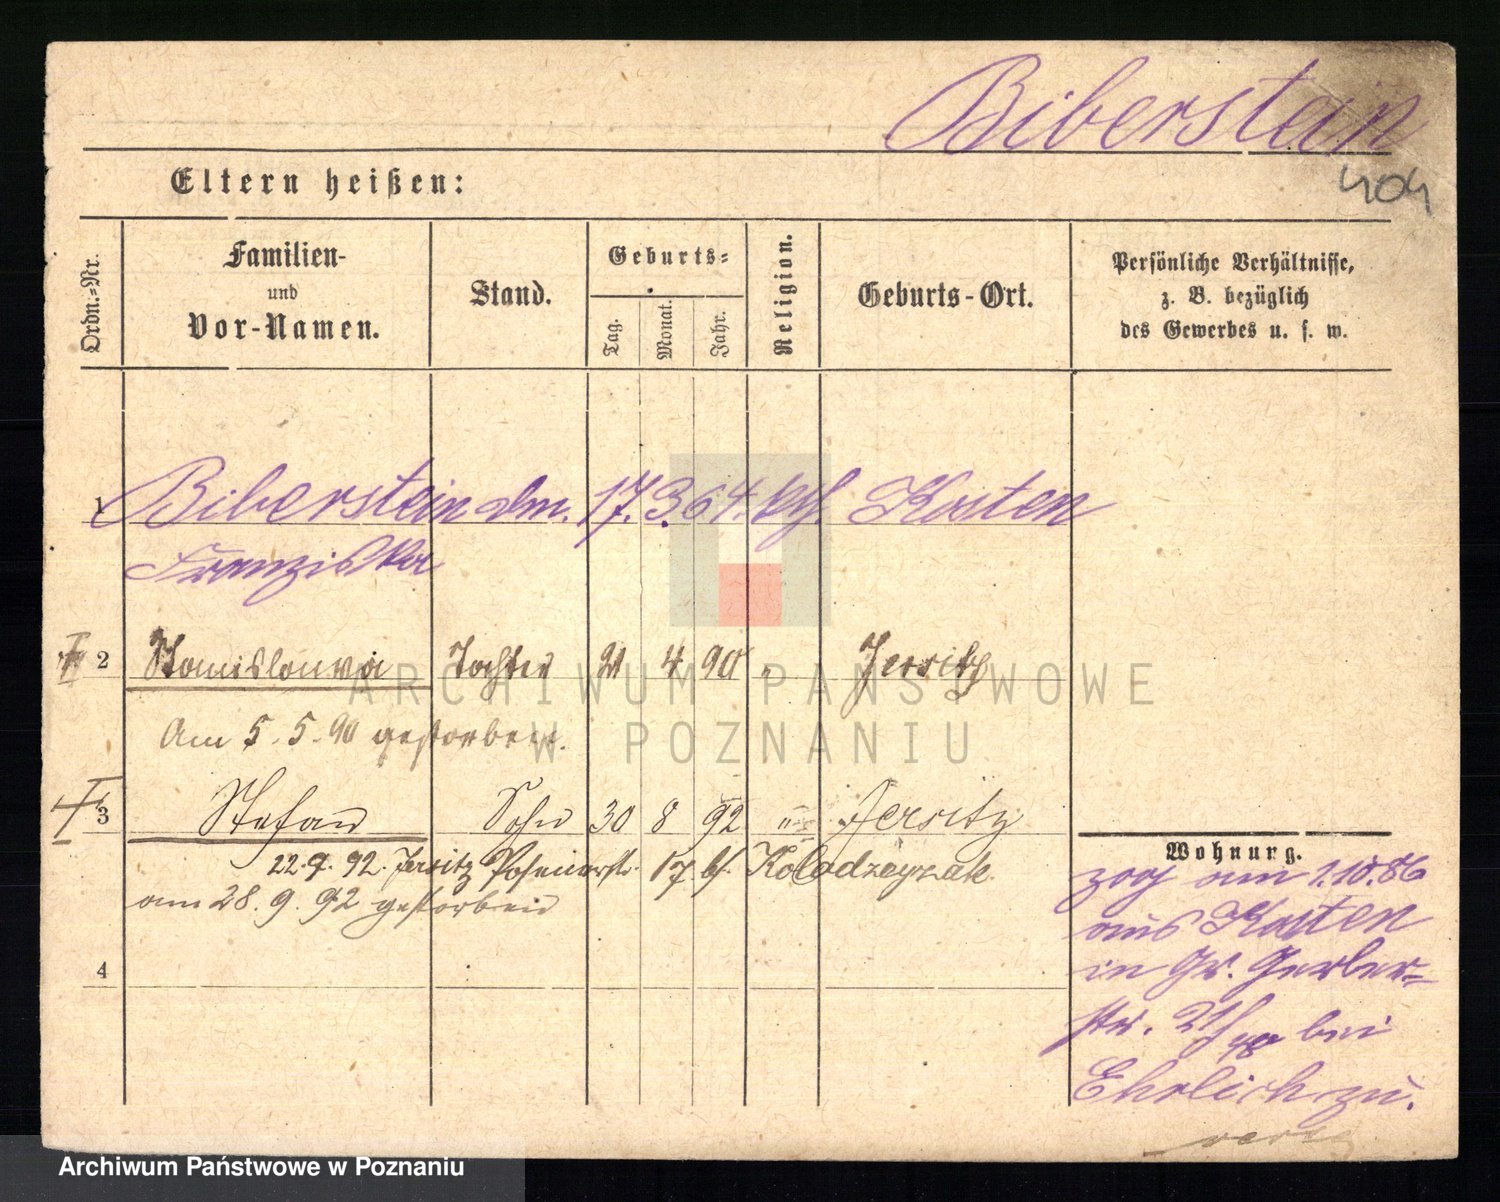 Biberstein
404
Eltern heißen:
Ordn.=Nr.
Familien-
und
Vor-Namen.
Stand.
Geburts=
Tag.
Monat.
Jahr.
Religion.
Geburts-Ort.
Persönliche Verhältnisse,
z. B. bezüglich
des Gewerbes u. s. w.
1 Biberstein 17. 3. 64. kth. Kosten
Franziska
2 Stanislawa Tochter 21 4 90 " Jersitz
Am 5. 5. 90 gestorben.
3 Stefan Sohn 30 8 92 " Jersitz
22. 9. 92. Jersitz Posenerstr. 17 bf. Kolodzeyzak.
am 28. 9. 92 gestorben
4
Wohnung.
zog am 1.10.86
aus Kosten
in Gr. Gerber=
str. 21/ bei
Ehrlich zu.
ARCHIWUM PAŃSTWOWE
W POZNANIU
Archiwum Państwowe w Poznaniu